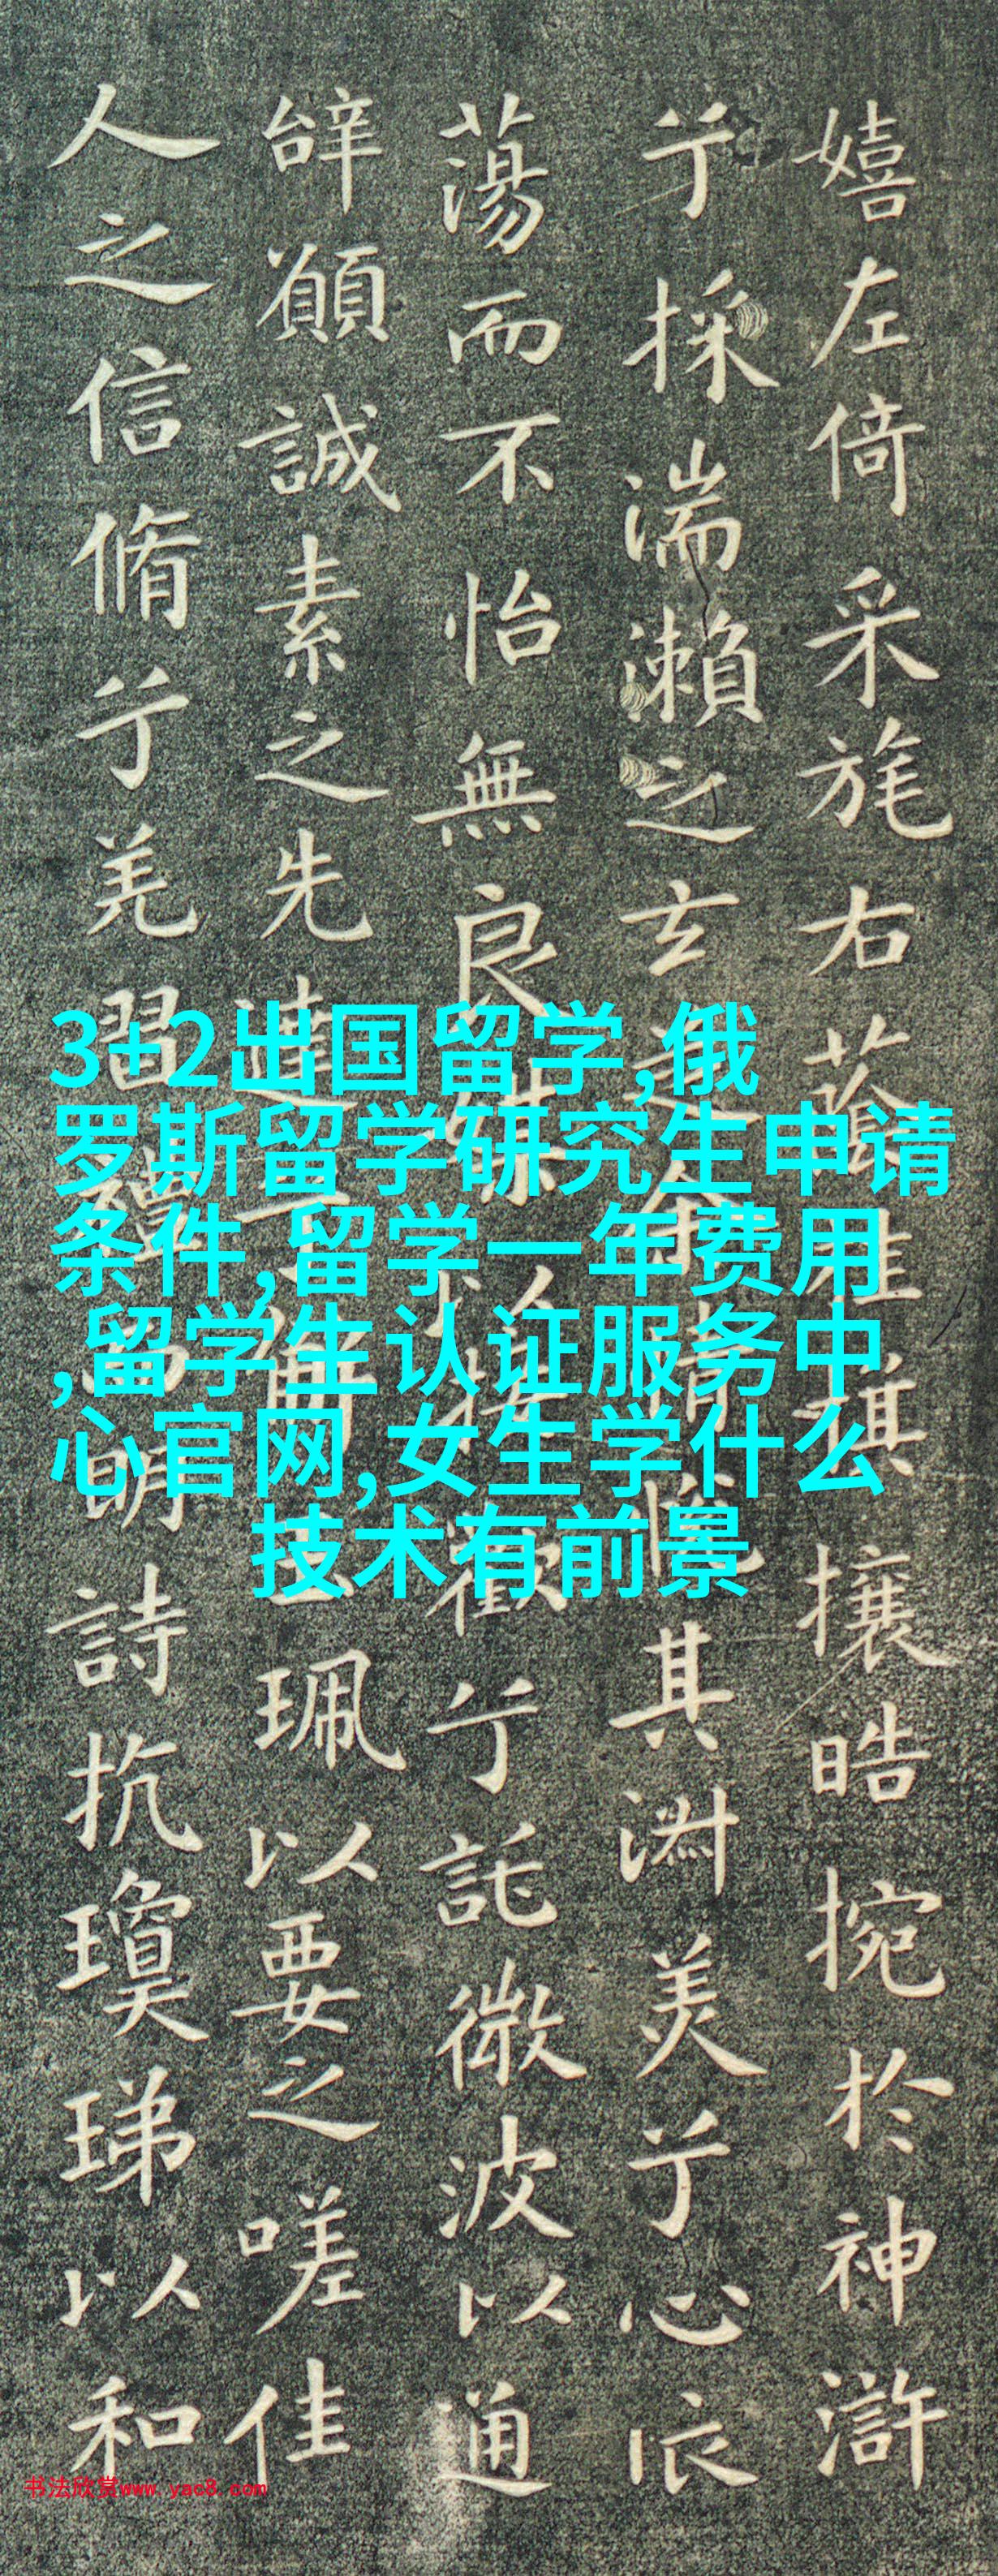 嬉左倚采旄右蔭桂旗攘皓捥於神滸
兮採湍瀨之玄芝余情悅其淑美兮心依
蕩而不怡無良媒以接歡兮託微波以通
辝願誠素之先達解玉佩以要之嗟佳
人之信脩兮羌習禮而明詩抗瓊珶以和
3+2出国留学,俄
罗斯留学研究生申请
条件,留学一年费用
,留学生认证服务中
心官网,女生学什么
技术有前景
书法欣赏www.yac8.com